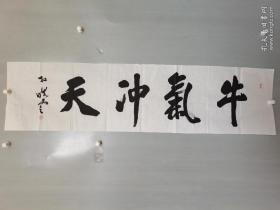 牛氣沖天
孔夫子旧书网